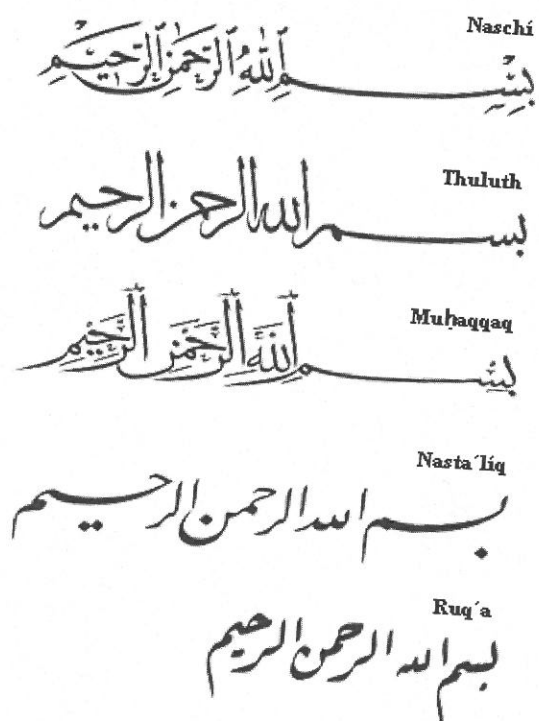 Naschí
بِسْمِ اللهِ الرَّحْمٰنِ الرَّحِيْمِ
Thuluth
بسم الله الرحمن الرحيم
Muḥaqqaq
بِسْمِ اللهِ الرَّحْمٰنِ الرَّحِيْمِ
Nasta´líq
بسم الله الرحمن الرحيم
Ruq´a
بسم الله الرحمن الرحيم